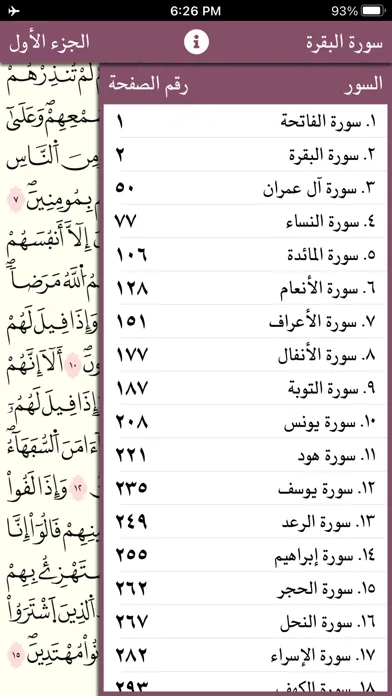 6:26 PM
93%
سورة البقرة
الجزء الأول
السور رقم الصفحة
١. سورة الفاتحة ١
٢. سورة البقرة ٢
٣. سورة آل عمران ٥٠
٤. سورة النساء ٧٧
٥. سورة المائدة ١٠٦
٦. سورة الأنعام ١٢٨
٧. سورة الأعراف ١٥١
٨. سورة الأنفال ١٧٧
٩. سورة التوبة ١٨٧
١٠. سورة يونس ٢٠٨
١١. سورة هود ٢٢١
١٢. سورة يوسف ٢٣٥
١٣. سورة الرعد ٢٤٩
١٤. سورة إبراهيم ٢٥٥
١٥. سورة الحجر ٢٦٢
١٦. سورة النحل ٢٦٧
١٧. سورة الإسراء ٢٨٢
١٨. سورة الكهف ٢٩٣
لَمْ تُنذِرْهُمْ
وَعَلَىٰ
مِنَ اَ۬لنَّاسِ
بِمُومِنِينَۖ ٧
إِلَّآ أَنفُسَهُمْ
اُ۬للَّهُ مَرَضاٗۖ
وَإِذَا قِيلَ لَهُمْ
١٠ أَلَآ إِنَّهُمْ
إِذَا قِيلَ لَهُمُۥٓ
اَ۬لسُّفَهَآءُۖ
١٢ وَإِذَا لَقُواْ
قَالُوٓاْ إِنَّا
بِهِمْ
اَ۬لذِينَ اَ۪شْتَرَوُاْ
مُهْتَدِينَۖ ١٥